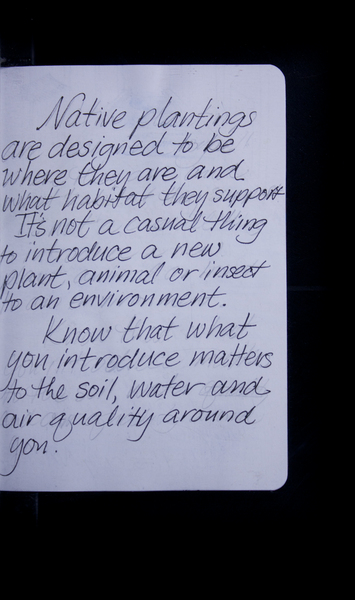 Native plantings
are designed to be
where they are and
what habitat they support
It's not a casual thing
to introduce a new
plant, animal or insect
to an environment.
Know that what
you introduce matters
to the soil, water and
air quality around
you.